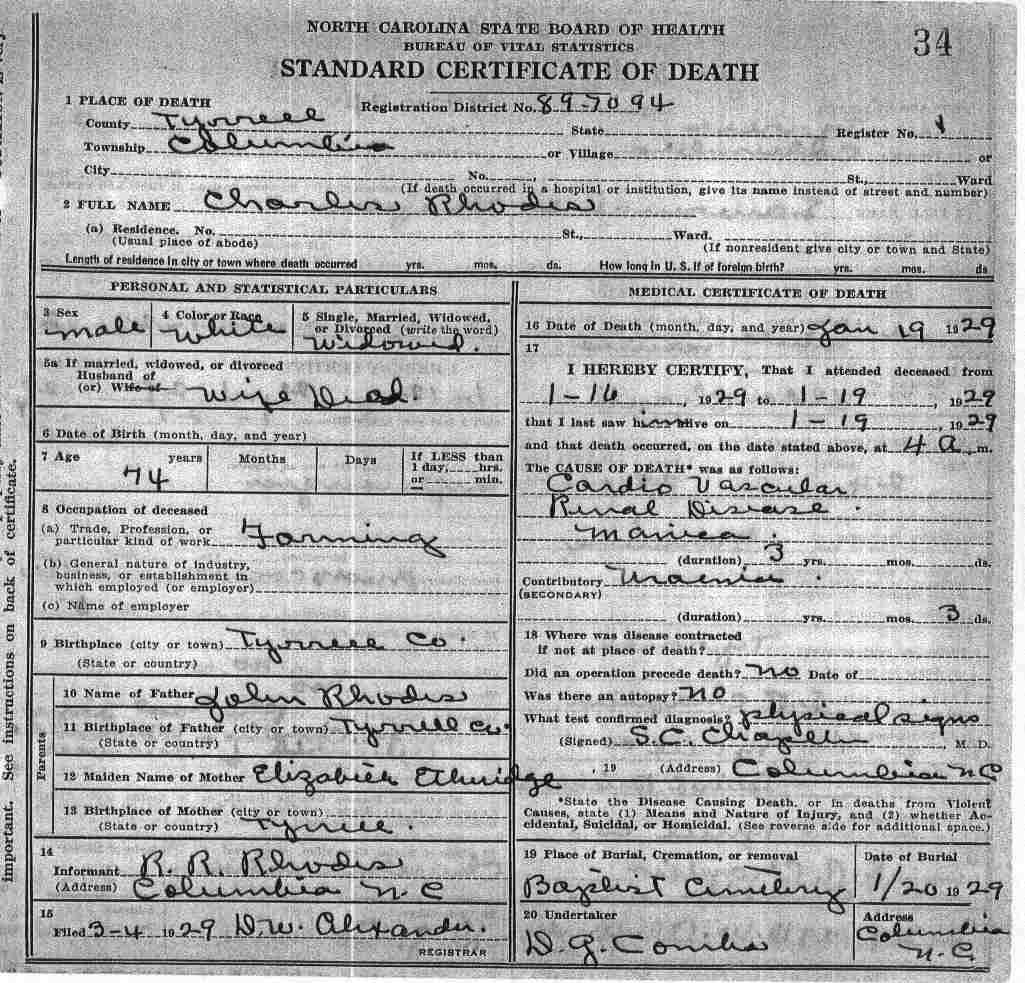 NORTH CAROLINA STATE BOARD OF HEALTH
BUREAU OF VITAL STATISTICS
34
STANDARD CERTIFICATE OF DEATH
1 PLACE OF DEATH Registration District No. 89-7094
County Tyrrell State Register No. 1
Township Columbia or Village or
City No. , St., Ward
(If death occurred in a hospital or institution, give its name instead of street and number)
2 FULL NAME Charles Rhodes
(a) Residence. No. St., Ward.
(Usual place of abode) (If nonresident give city or town and State)
Length of residence in city or town where death occurred yrs. mos. ds. How long in U. S. if of foreign birth? yrs. mos. ds.
PERSONAL AND STATISTICAL PARTICULARS
3 Sex 4 Color or Race 5 Single, Married, Widowed,
or Divorced (write the word)
male white Widowed.
5a If married, widowed, or divorced
Husband of
(or) Wife of Wife Dead.
6 Date of Birth (month, day, and year)
7 Age years Months Days If LESS than
1 day, hrs.
74 or min.
8 Occupation of deceased
(a) Trade, Profession, or
particular kind of work Farming
(b) General nature of industry,
business, or establishment in
which employed (or employer)
(c) Name of employer
9 Birthplace (city or town) Tyrrell Co.
(State or country)
Parents
10 Name of Father John Rhodes
11 Birthplace of Father (city or town) Tyrrell Co.
(State or country)
12 Maiden Name of Mother Elizabieh Ethridge
13 Birthplace of Mother (city or town)
(State or country) Tyrrell.
14
Informant R. R. Rhodes
(Address) Columbia N. C
15
Filed 3-4 1929 D. W. Alexander.
REGISTRAR
MEDICAL CERTIFICATE OF DEATH
16 Date of Death (month, day, and year) Jan 19 1929
17
I HEREBY CERTIFY, That I attended deceased from
1-16, 1929 to 1-19, 1929
that I last saw him alive on 1-19, 1929
and that death occurred, on the date stated above, at 4 a. m.
The CAUSE OF DEATH* was as follows:
Cardio Vascular
Renal Disease.
(duration) 3 yrs. mos. ds.
Contributory Uraemia.
(SECONDARY)
(duration) yrs. mos. 3 ds.
18 Where was disease contracted
if not at place of death?
Did an operation precede death? no Date of
Was there an autopsy? NO
What test confirmed diagnosis? physical signs
(Signed) S. C. Chaplin, M. D.
, 19 (Address) Columbia N C
*State the Disease Causing Death, or in deaths from Violent
Causes, state (1) Means and Nature of Injury, and (2) whether Ac-
cidental, Suicidal, or Homicidal. (See reverse side for additional space.)
19 Place of Burial, Cremation, or removal Date of Burial
Baptist Cemetery 1/20 1929
20 Undertaker Address
D. G. Combs Columbia
N. C.
important. See instructions on back of certificate.